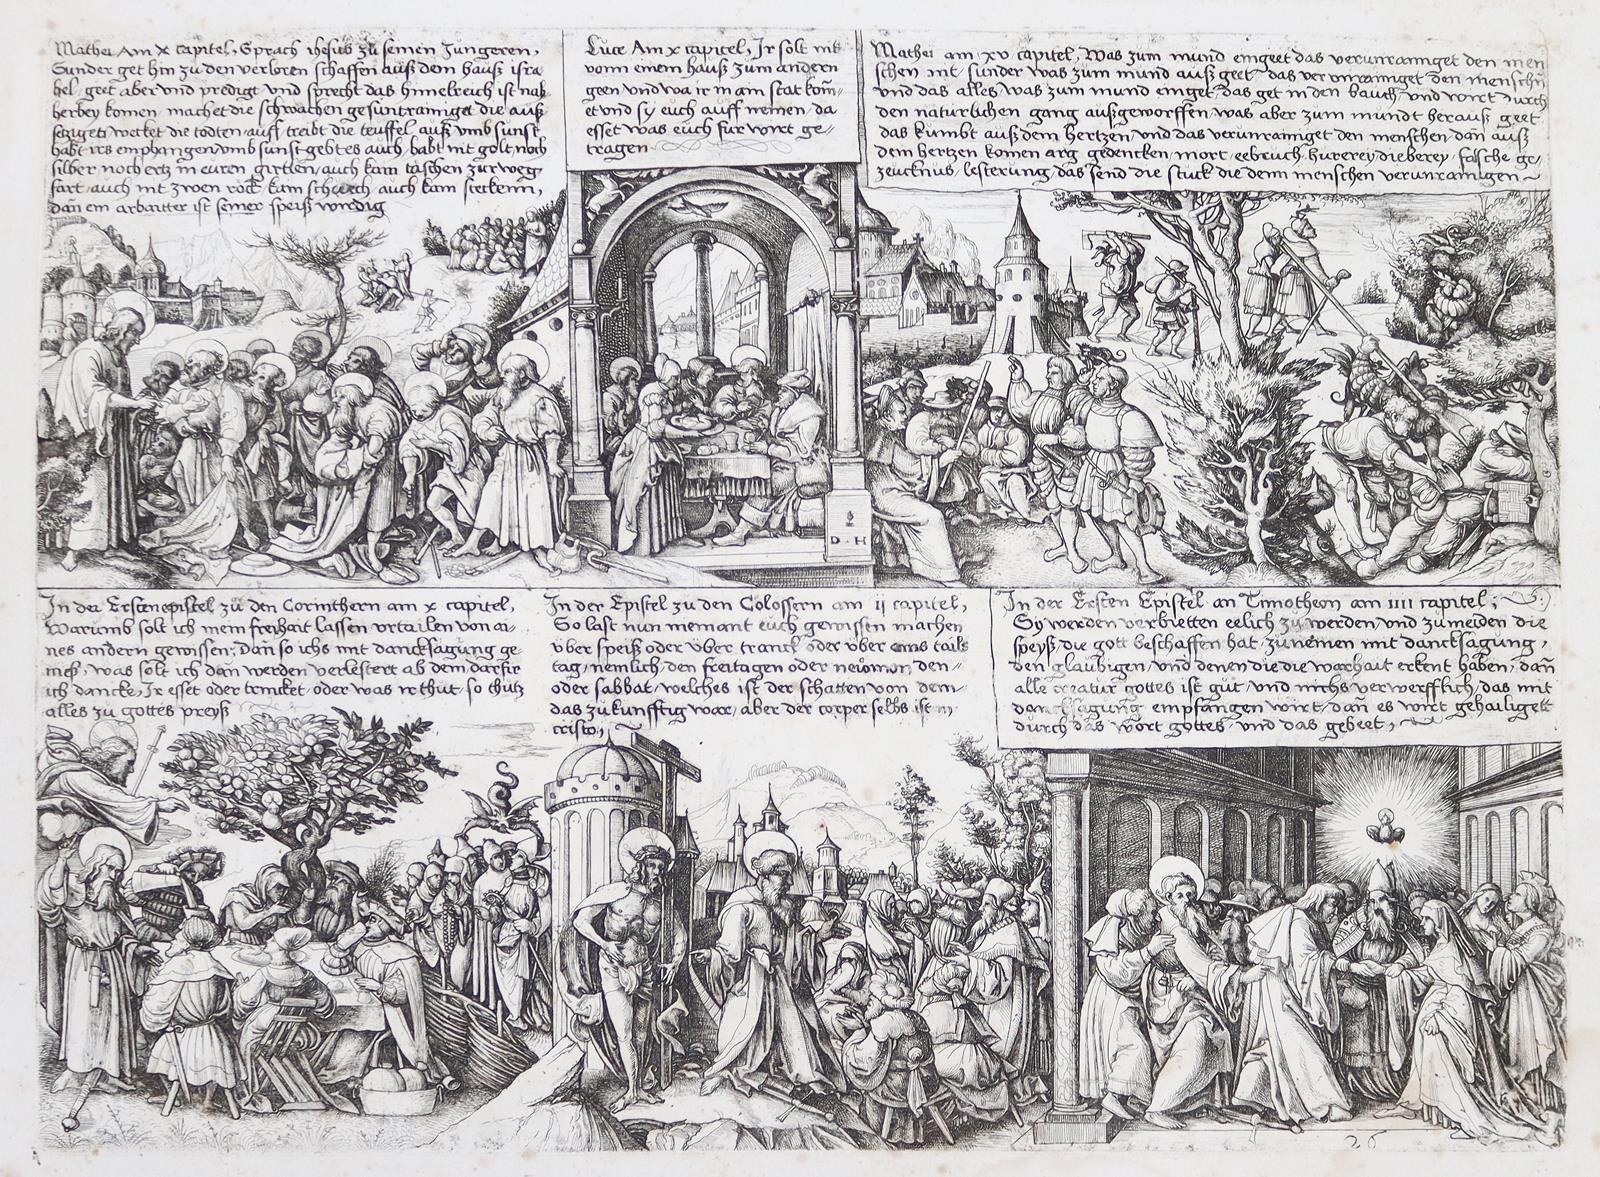 Mathei Am x capitel, Sprach ihesus zu seinen Jungeren,
Sunder get hin zu den verloren schaffen auß dem hauß isra
hel, geet aber vnd predigt vnd sprecht das himelreich ist nah
herbey komen, machet die schwachen gesunt rainiget die auß
setzigen wecket die todten auff treibt die teuffel auß vmb sunst
habt irs emphangen vmb sunst gebt es auch, habt nit golt noch
silber noch ertz in euren girtlen, auch kain täschen zur weg
fart, auch nit zwen röck kain schuech, auch kain stecken,
dañ ein arbaitter ist seiner speiß wirdig
Luce Am x capitel, Ir solt nit
vonn einem hauß zum andern
geen vnd wa ir in ain stat kom̄
et vnd sy euch auff nemen, da
esset was euch fur wirt ge-
tragen
Mathei am xv capitel, Was zum mund eingeet das verunrainiget den men
schen nit, sunder was zum mund auß geet das verunrainiget den menschn̄
vnd das alles was zum mund einget, das get in den bauch vnd wirt durch
den natürlichen gang außgeworffen, was aber zum mundt herauß geet
das kumbt auß dem hertzen, vnd das verunrainiget den menschen, dan̄ auß
dem hertzen komen arg gedencken, mort, eebruch, hurerey, dieberey, falsche ge-
zeucknus, lesterung, das send die stuck die denn menschen verunrainigen
D H
In der Ersten epistel zu den Corinthern am x capitel,
Warumb solt ich mein freihait lassen vrtailen von ai-
nes andern gewissen, Dan so ichs mit dancksagung ge-
nieß, was solt ich dan̄ werden verlestert ab dem darfir
ich dancke, Ir esset oder trincket, oder was ir thut, so thutz
alles zu gottes preyß
In der Epistel zu den Colossern am ij capitel,
So last nun niemant euch gewissen machen
über speiß oder über tranck oder über ains tails
tag, nemlich, den freitagen oder newmon, den-
oder sabbat, welches ist der schatten von dem-
das zukunfftig war, aber der corper selbs ist in
cristo,
In der Ersten Epistel an Timotheon am iiii capitel,
Sy werden verbietten eelich zu werden, vnd zu meiden die
speyß, die gott beschaffen hat, zunemen mit dancksagung,
den glaubigen, vnd denen die die warhait erkent haben, dan̄
alle creatur gottes ist gut, vnd nichs verwerfflich, das mit
dancksagung empfangen wirt, dan es wirt gehailiget
durch das wort gottes, vnd das gebeet,
26